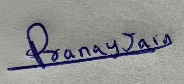 Pranay Jain